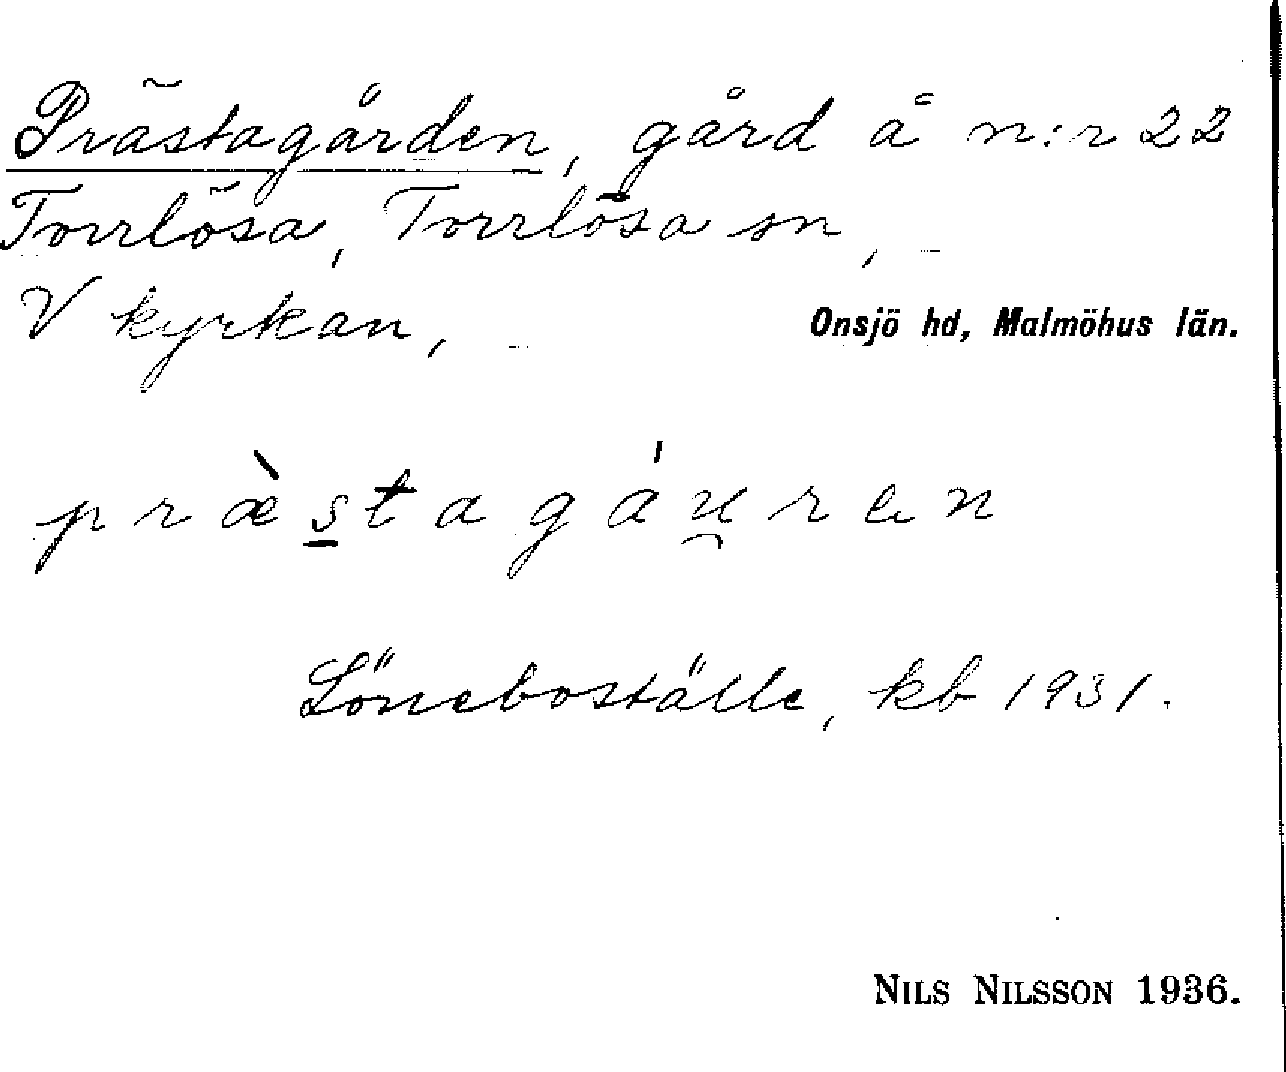 Prästagården, gård å n:r 22
Torrlösa, Torrlösa sn,
V kyrkan, Onsjö hd, Malmöhus län.
præ̀s̱tagáu̯ren
Löneboställe, kb 1931.
NILS NILSSON 1936.